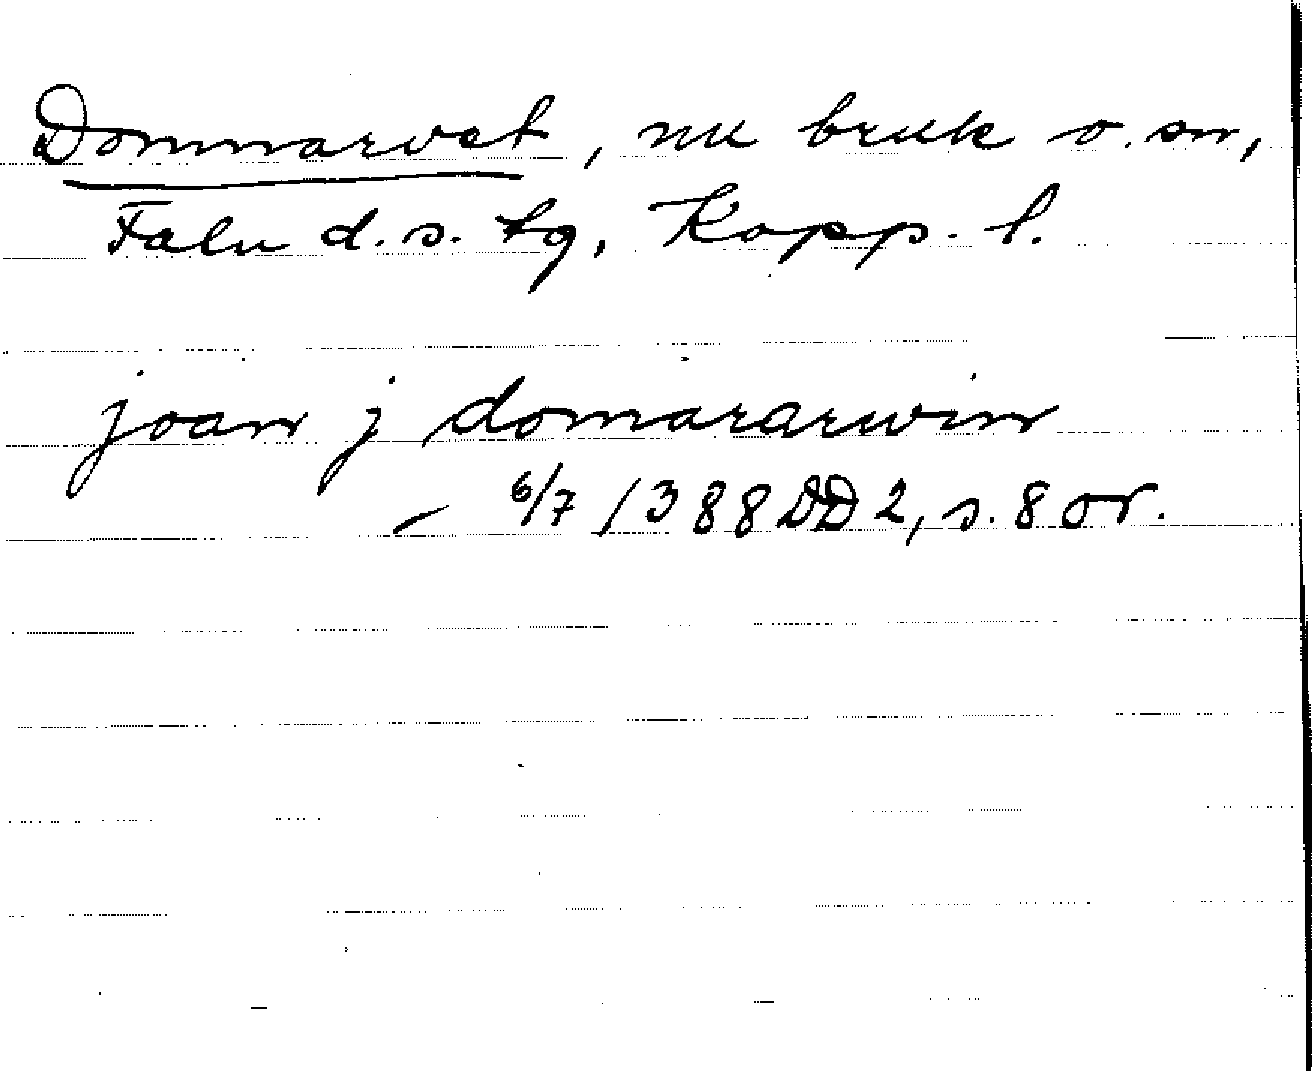 Domnarvet, nu bruk o. sn,
Falu d.s. tg, Kopp. l.
joan j domararwin
6/7 1388 DD 2, s. 8 or.